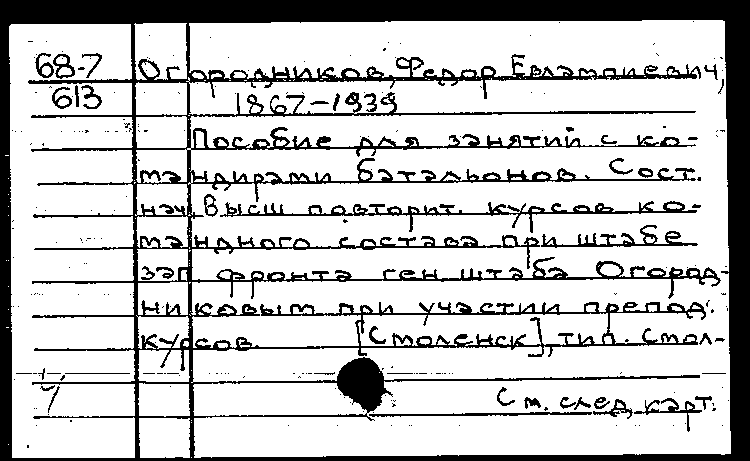 68-7 Огородников, Федор Евлампиевич,
613 1867-1939
Пособие для занятий с ко-
мандирами батальонов. Сост.
нач. Высш повторит. курсов ко-
мандного состава при штабе
зап. фронта ген. штаба Огород-
никовым при участии препод.
курсов. [Смоленск], тип. Смол-
См. след. карт.